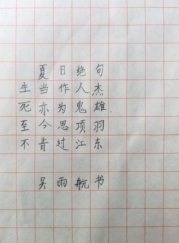 夏日绝句
生当作人杰
死亦为鬼雄
至今思项羽
不肯过江东
吴雨航书